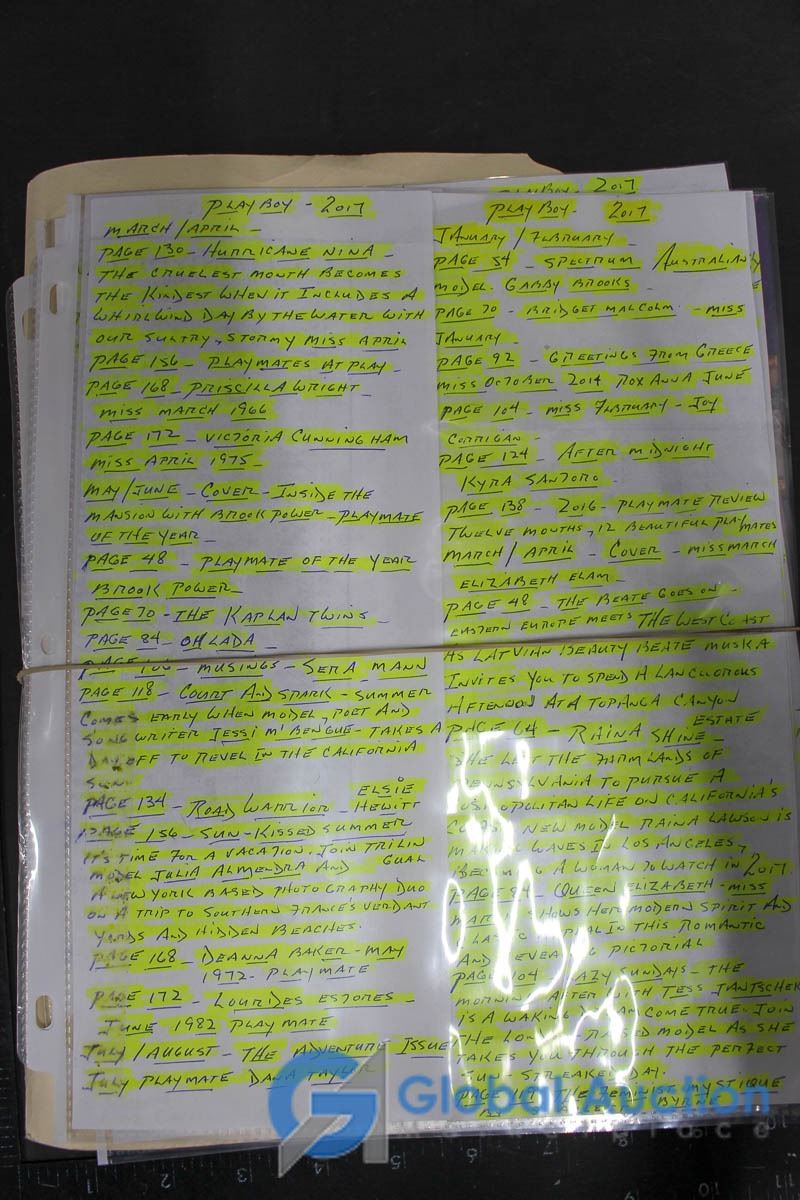 PLAYBOY - 2017
PLAYBOY - 2017
MARCH/APRIL -
PAGE 130 - HURRICANE NINA -
THE CRUELEST MONTH BECOMES
THE KINDEST WHEN IT INCLUDES A
WHIRLWIND DAY BY THE WATER WITH
OUR SULTRY, STORMY MISS APRIL
PAGE 156 - PLAYMATES AT PLAY -
PAGE 168 - PRISCILLA WRIGHT -
MISS MARCH 1966
PAGE 172 - VICTORIA CUNNINGHAM
MISS APRIL 1975 -
MAY/JUNE - COVER - INSIDE THE
MANSION WITH BROOK POWER - PLAYMATE
OF THE YEAR -
PAGE 48 - PLAYMATE OF THE YEAR
BROOK POWER -
PAGE 70 - THE KAPLAN TWINS -
PAGE 84 - OH LADA -
PAGE - MUSINGS - SERA MANN
PAGE 118 - COURT AND SPARK - SUMMER
COMES EARLY WHEN MODEL, POET AND
SONG WRITER JESSI M'BENGUE - TAKES A
DAY OFF TO REVEL IN THE CALIFORNIA
SUN -
PAGE 134 - ROAD WARRIOR - ELSIE HEWITT
PAGE 156 - SUN-KISSED SUMMER
IT'S TIME FOR A VACATION. JOIN TRILIN
MODEL JULIA ALMENDRA AND GUAL
A NEW YORK BASED PHOTOGRAPHY DUO
ON A TRIP TO SOUTHERN FRANCE'S VERDANT
YARDS AND HIDDEN BEACHES.
PAGE 168 - DEANNA BAKER - MAY
1972 - PLAYMATE
PAGE 172 - LOURDES ESTORES -
JUNE 1982 PLAYMATE
JULY/AUGUST - THE ADVENTURE ISSUE
JULY PLAYMATE DANA TAYLOR
PLAYBOY - 2017
JANUARY/FEBRUARY -
PAGE 54 - SPECTRUM AUSTRALIAN
MODEL. GABBY BROOKS -
PAGE 70 - BRIDGET MALCOLM - MISS
JANUARY -
PAGE 92 - GREETINGS FROM GREECE
MISS OCTOBER 2014 ROXANNA JUNE
PAGE 104 - MISS FEBRUARY - JOY
CORRIGAN -
PAGE 124 - AFTER MIDNIGHT
KYRA SANTORO -
PAGE 138 - 2016 - PLAYMATE REVIEW
TWELVE MONTHS, 12 BEAUTIFUL PLAYMATES
MARCH/APRIL - COVER - MISS MARCH
ELIZABETH ELAM -
PAGE 48 - THE BEATE GOES ON -
EASTERN EUROPE MEETS THE WEST COAST
AS LATVIAN BEAUTY BEATE MUSKA
INVITES YOU TO SPEND A LANGUOROUS
AFTERNOON AT A TOPANGA CANYON
ESTATE
PAGE 64 - RAINA SHINE -
SHE LEFT THE FARMLANDS OF
PENNSYLVANIA TO PURSUE A
COSMOPOLITAN LIFE ON CALIFORNIA'S
COAST. NEW MODEL RAINA LAWSON IS
MAKING WAVES IN LOS ANGELES,
BECOMING A WOMAN TO WATCH IN 2017.
PAGE 84 - QUEEN ELIZABETH - MISS
MARCH SHOWS HER MODERN SPIRIT AND
CLASSIC APPEAL IN THIS ROMANTIC
AND REVEALING PICTORIAL
PAGE 104 - LAZY SUNDAYS - THE
MORNING AFTER WITH TESS JANTSCHEK
IS A WAKING DREAM COME TRUE. JOIN
THE MODEL AS SHE
TAKES YOU THROUGH THE PERFECT
SUN-STREAKED DAY.
PAGE 117 - THE FEMINIST MYSTIQUE
Global Auction
5 6 7 8 9 10 11